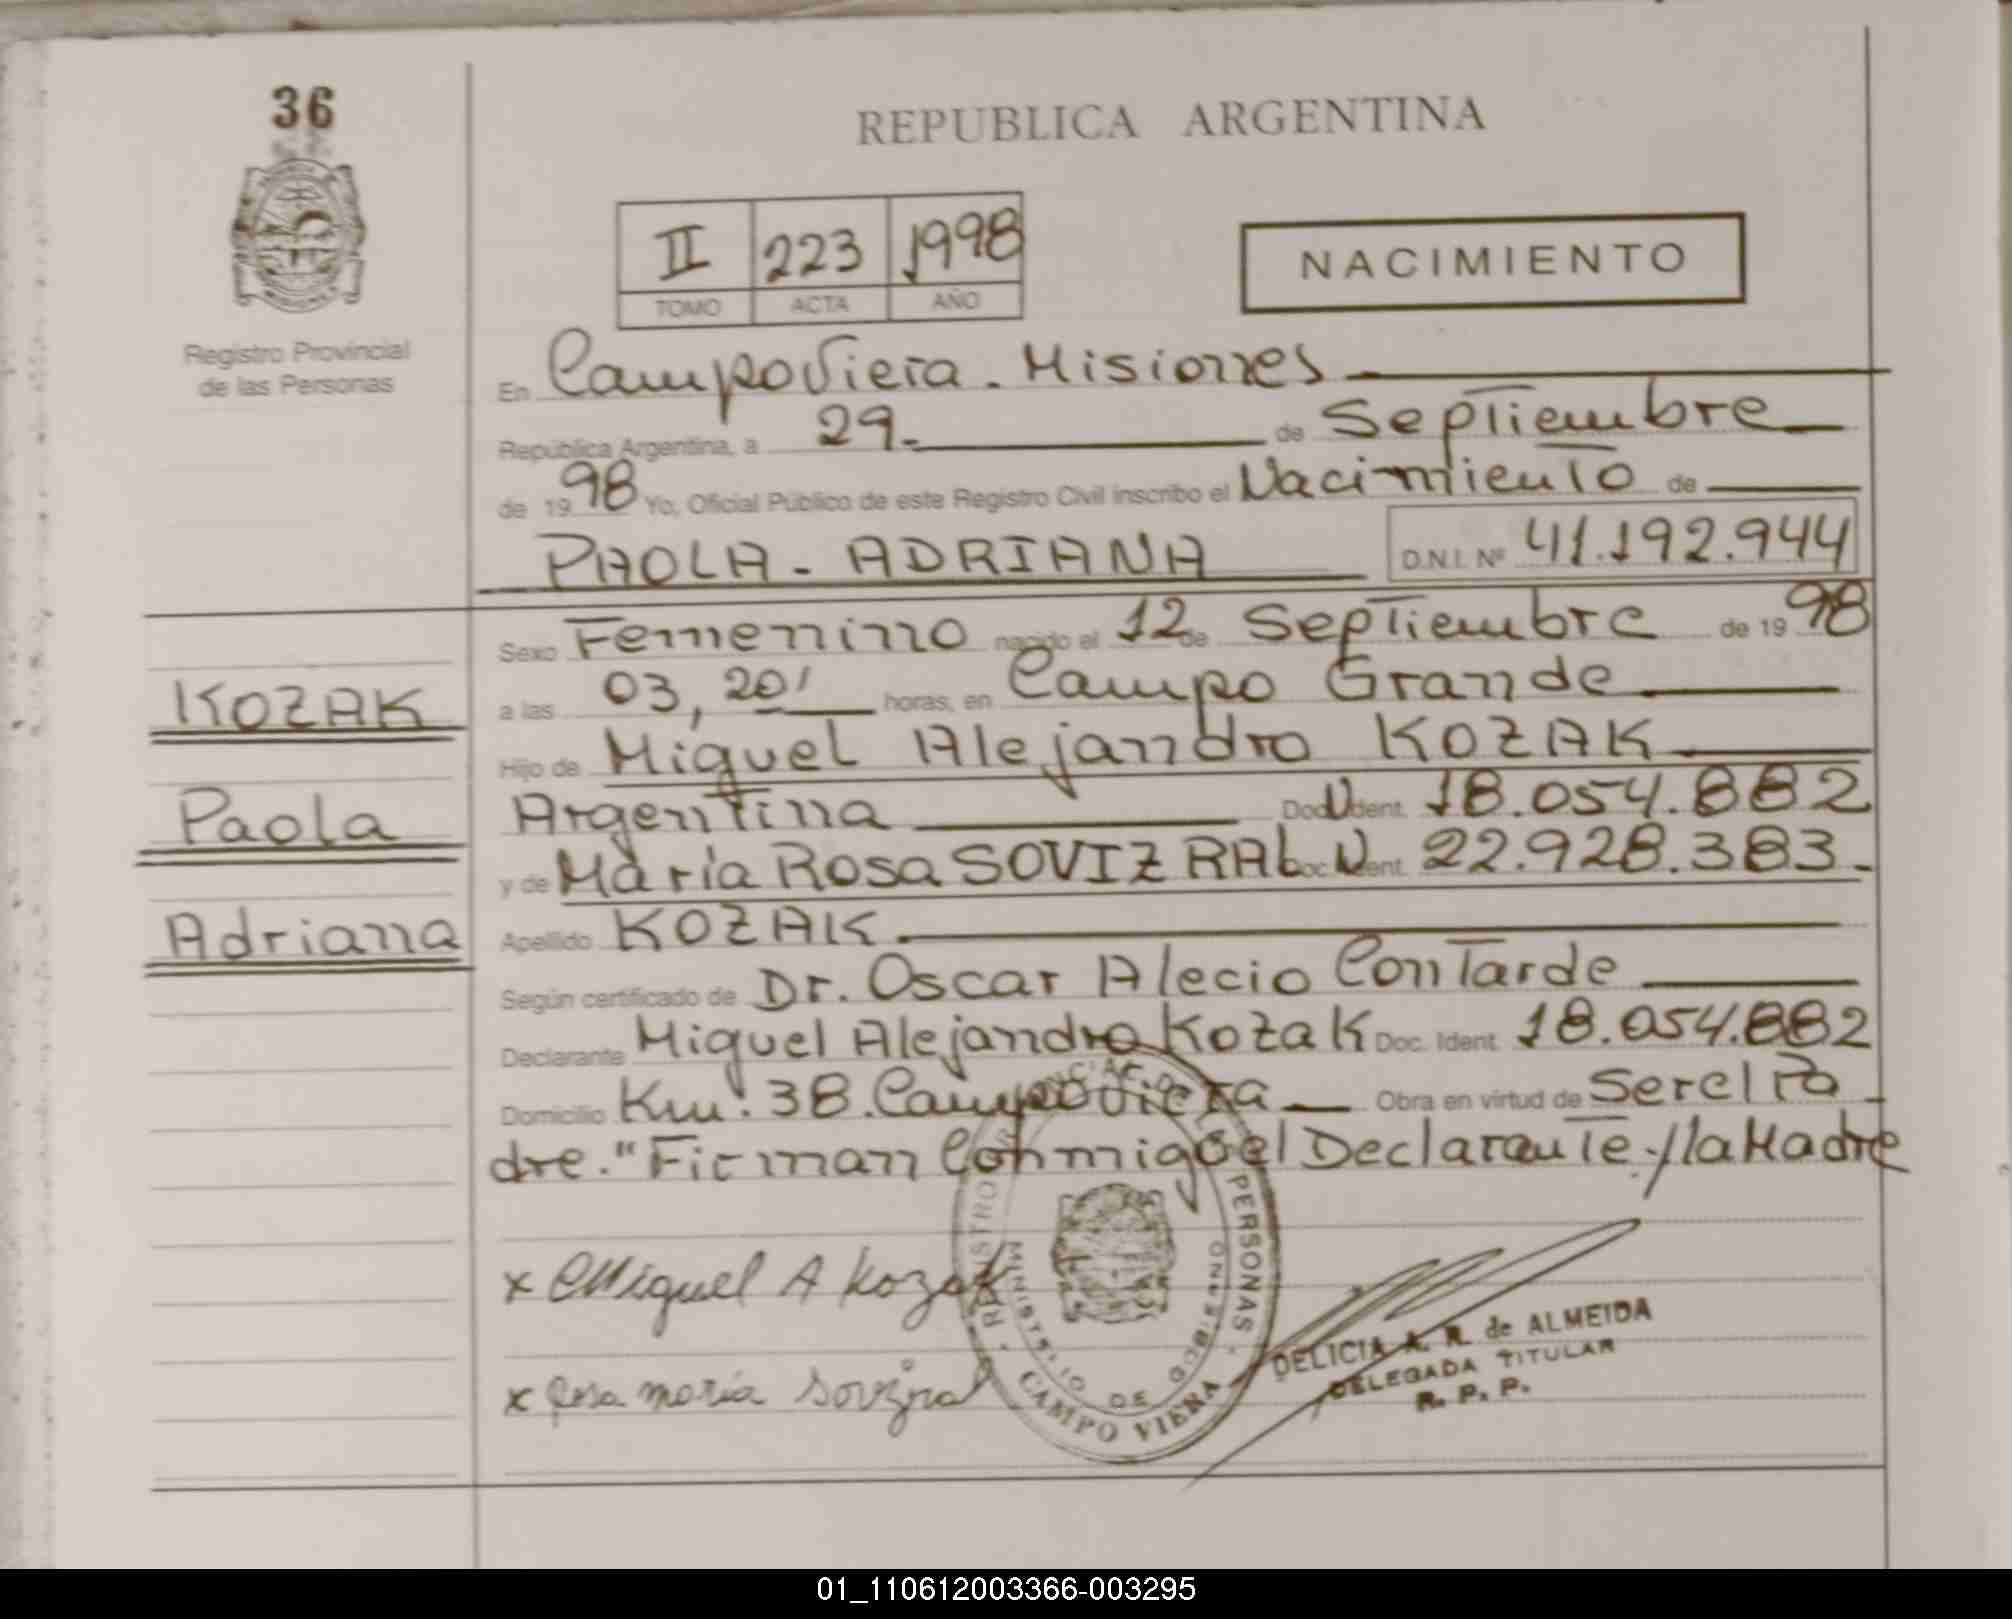 36
REPUBLICA ARGENTINA
II 223 1998
TOMO ACTA AÑO
NACIMIENTO
Registro Provincial
de las Personas
En Campo Viera. Misiones
República Argentina, a 29. de Septiembre
de 1998 Yo, Oficial Público de este Registro Civil inscribo el Nacimiento de
PAOLA - ADRIANA D.N.I. Nº 41.192.944
Sexo Femenino nacido el 12 de Septiembre de 1998
a las 03, 20' horas, en Campo Grande
Hijo de Miguel Alejandro KOZAK
Argentina Doc. Ident. 18.054.882
y de María Rosa SOVIZRAL Doc. Ident. 22.928.383.
Apellido KOZAK
Según certificado de Dr. Oscar Alecio Contarde
Declarante Miguel Alejandro Kozak Doc. Ident. 18.054.882
Domicilio Km: 38. Campo Viera Obra en virtud de Ser el Pa
dre." Firman Conmigo el Declarante y la Madre
KOZAK
Paola
Adriana
x Miguel A Kozak
x Rosa maria Sovizral
PERSONAS
MINISTERIO DE GOBIERNO
CAMPO VIERA
DELICIA A. R. de ALMEIDA
DELEGADA TITULAR
R. P. P.
01_110612003366-003295